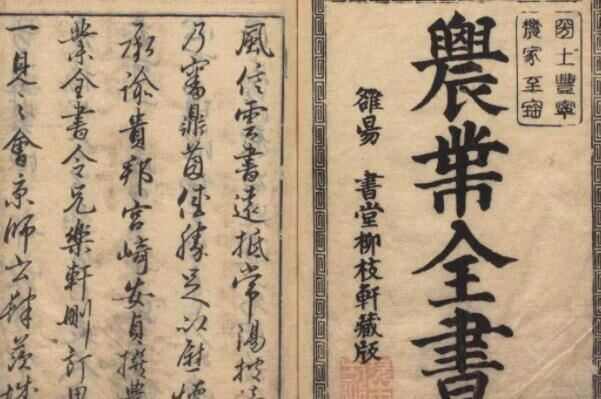 土豐寧
農家至寶
農業全書
雒昜 書堂柳枝軒藏版
風信雲書遠抵常陽披
乃審鼎茵佳勝足以慰
承諭貴邦宮崎安貞撰農
業全書令兄樂軒刪訂
一見之會京師書肆茨城